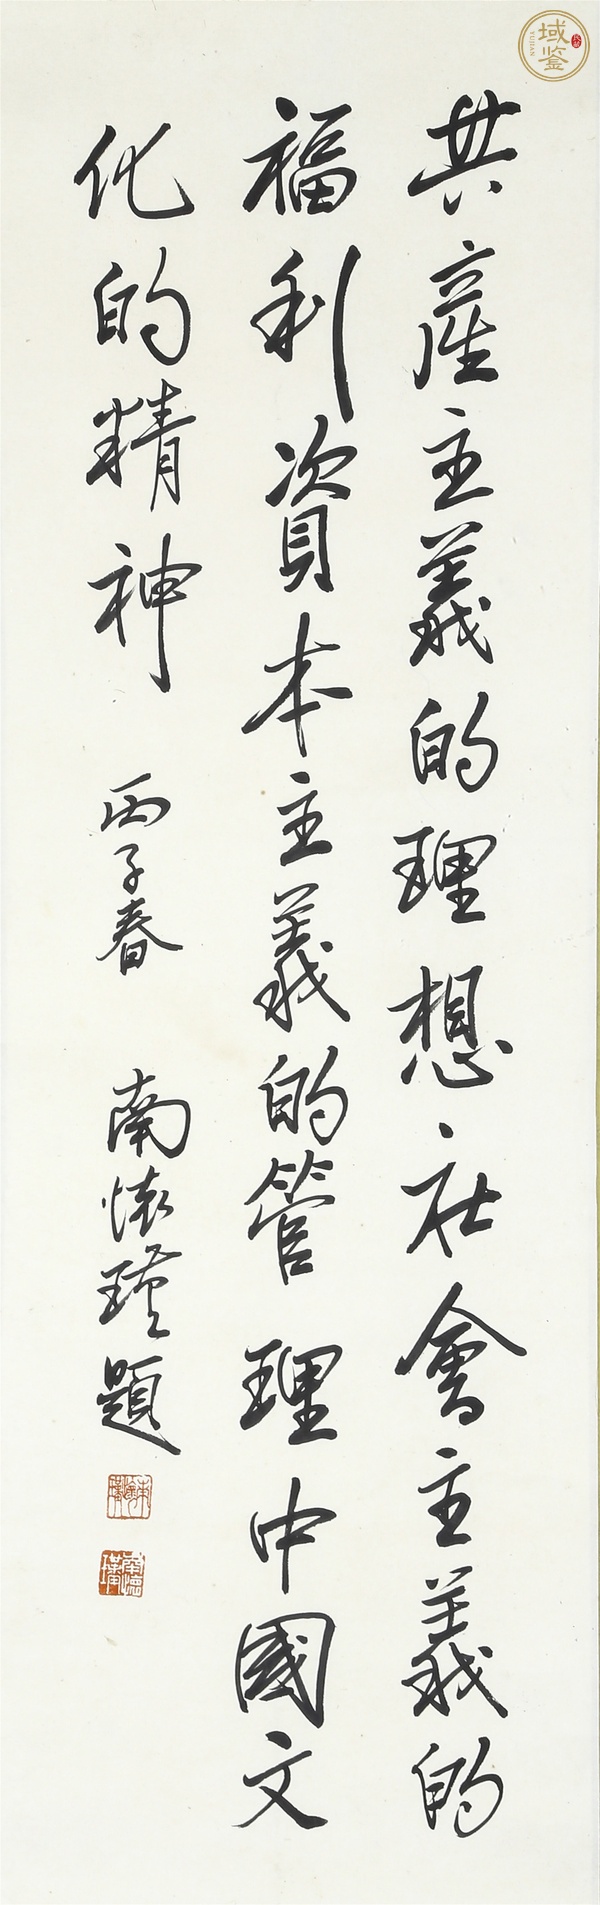 共產主義的理想社會主義的
福利資本主義的管理中國文
化的精神 丙子春 南懷瑾題
南懷瑾
域鉴
YUJIAN